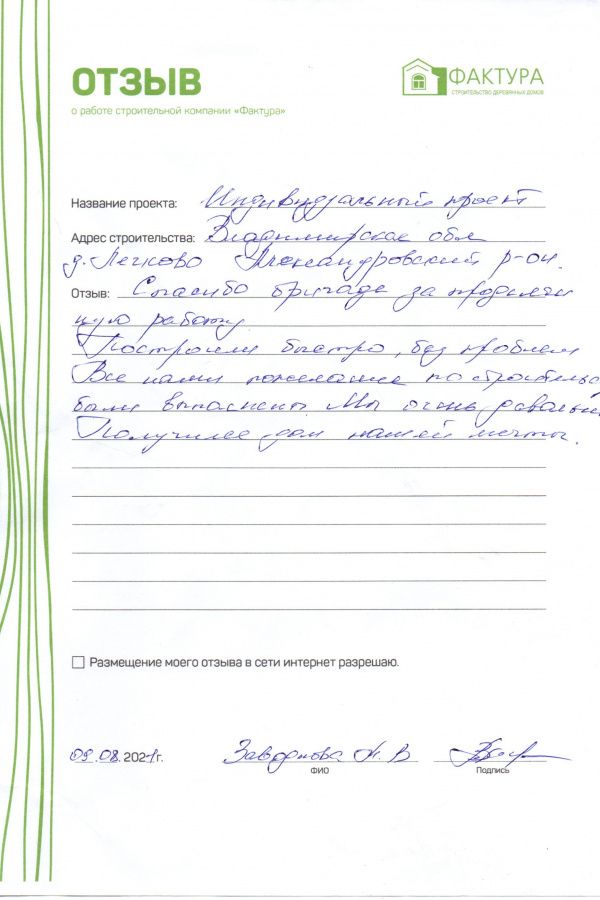 ОТЗЫВ
ФАКТУРА
СТРОИТЕЛЬСТВО ДЕРЕВЯННЫХ ДОМОВ
о работе строительной компании «Фактура»
Название проекта: Индивидуальный проект
Адрес строительства: Владимирская обл
д. Легково Александровский р-он.
Отзыв: Спасибо бригаде за проделан
ную работу
Построили быстро, без проблем
Все наши пожелания по строительс
были выполнены. Мы очень довольн
Получился дом нашей мечты.
Размещение моего отзыва в сети интернет разрешаю.
09.08.2021г. В
ФИО Подпись